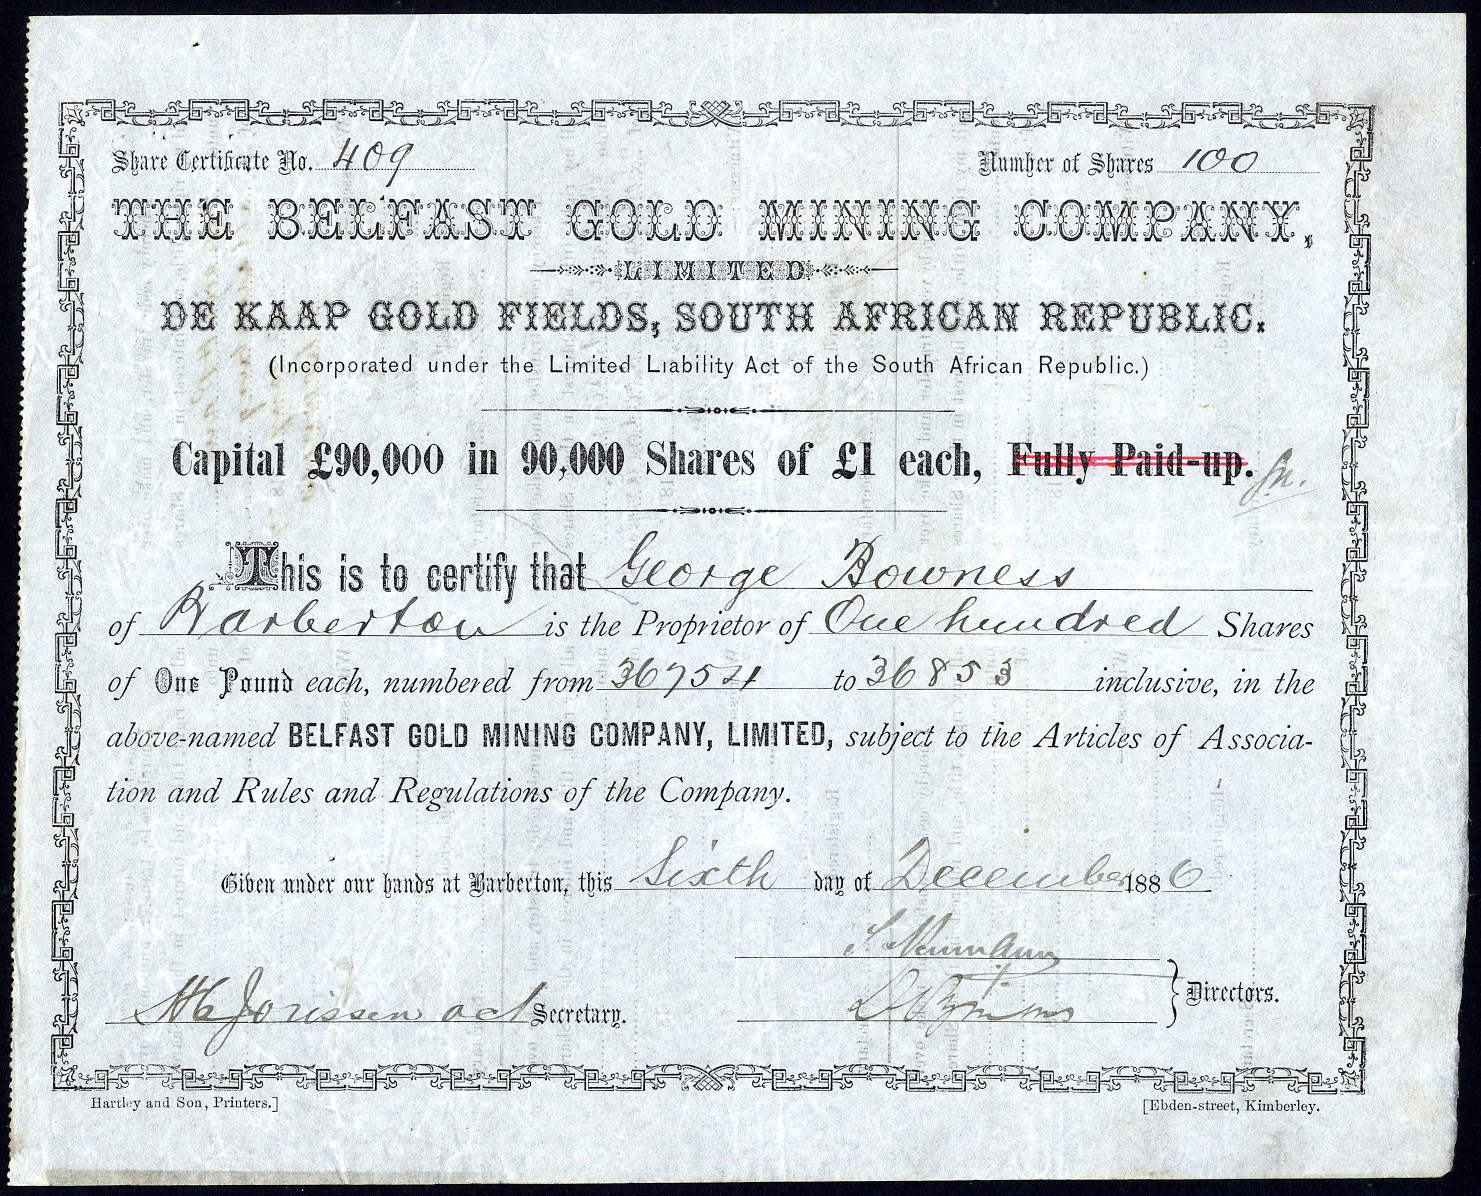 Share Certificate No. 409
Number of Shares 100
THE BELFAST GOLD MINING COMPANY,
LIMITED
DE KAAP GOLD FIELDS, SOUTH AFRICAN REPUBLIC.
(Incorporated under the Limited Liability Act of the South African Republic.)
Capital £90,000 in 90,000 Shares of £1 each, Fully Paid-up.
This is to certify that George Bowness
of Barberton is the Proprietor of One hundred Shares
of One Pound each, numbered from 36754 to 36853 inclusive, in the
above-named BELFAST GOLD MINING COMPANY, LIMITED, subject to the Articles of Associa-
tion and Rules and Regulations of the Company.
Given under our hands at Barberton, this Sixth day of December 1886
Neumann
Jorissen act Secretary.
Directors.
Hartley and Son, Printers.]
[Ebden-street, Kimberley.